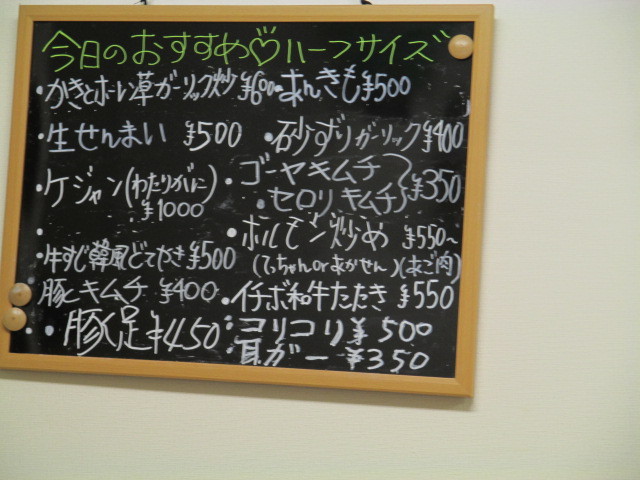 今日のおすすめ♡ハーフサイズ
・かきとホーレン草ガーリック炒 ¥600
・あんきも¥500
・生せんまい ¥500
・砂ずりガーリック¥400
・ケジャン(わたりがに) ¥1000
・ゴーヤキムチ
・セロリキムチ ¥350
・ホルモン炒め ¥550~
(てっちゃんorあかせん)(あご肉)
・牛すじ韓風どてやき ¥500
豚とキムチ ¥400
・イチボ和牛たたき ¥550
・豚足¥450
・コリコリ ¥500
・耳ガー ¥350